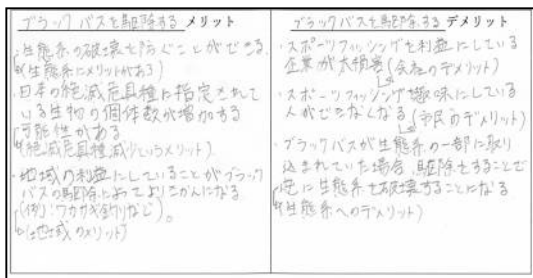 ブラックバスを駆除する メリット
・生態系の破壊を防ぐことができる
(生態系にメリットがある)
・日本の絶滅危具種に指定されて
いる生物の個体数が増加する
可能性がある
(絶滅危具種減少というメリット)
・地域の利益にしていることがブラック
バスの駆除によってよりさかんになる
(例:ワカサギ釣りなど)。
(地域のメリット)
ブラックバスを駆除する デメリット
・スポーツフィッシングを利益にしている
企業が大損害(会社のデメリット)
・スポーツフィッシングを趣味にしている
人ができなくなる(市民のデメリット)
・ブラックバスが生態系の一部に取り
込まれていた場合、駆除をすることで
逆に生態系を破壊することになる
(生態系へのデメリット)